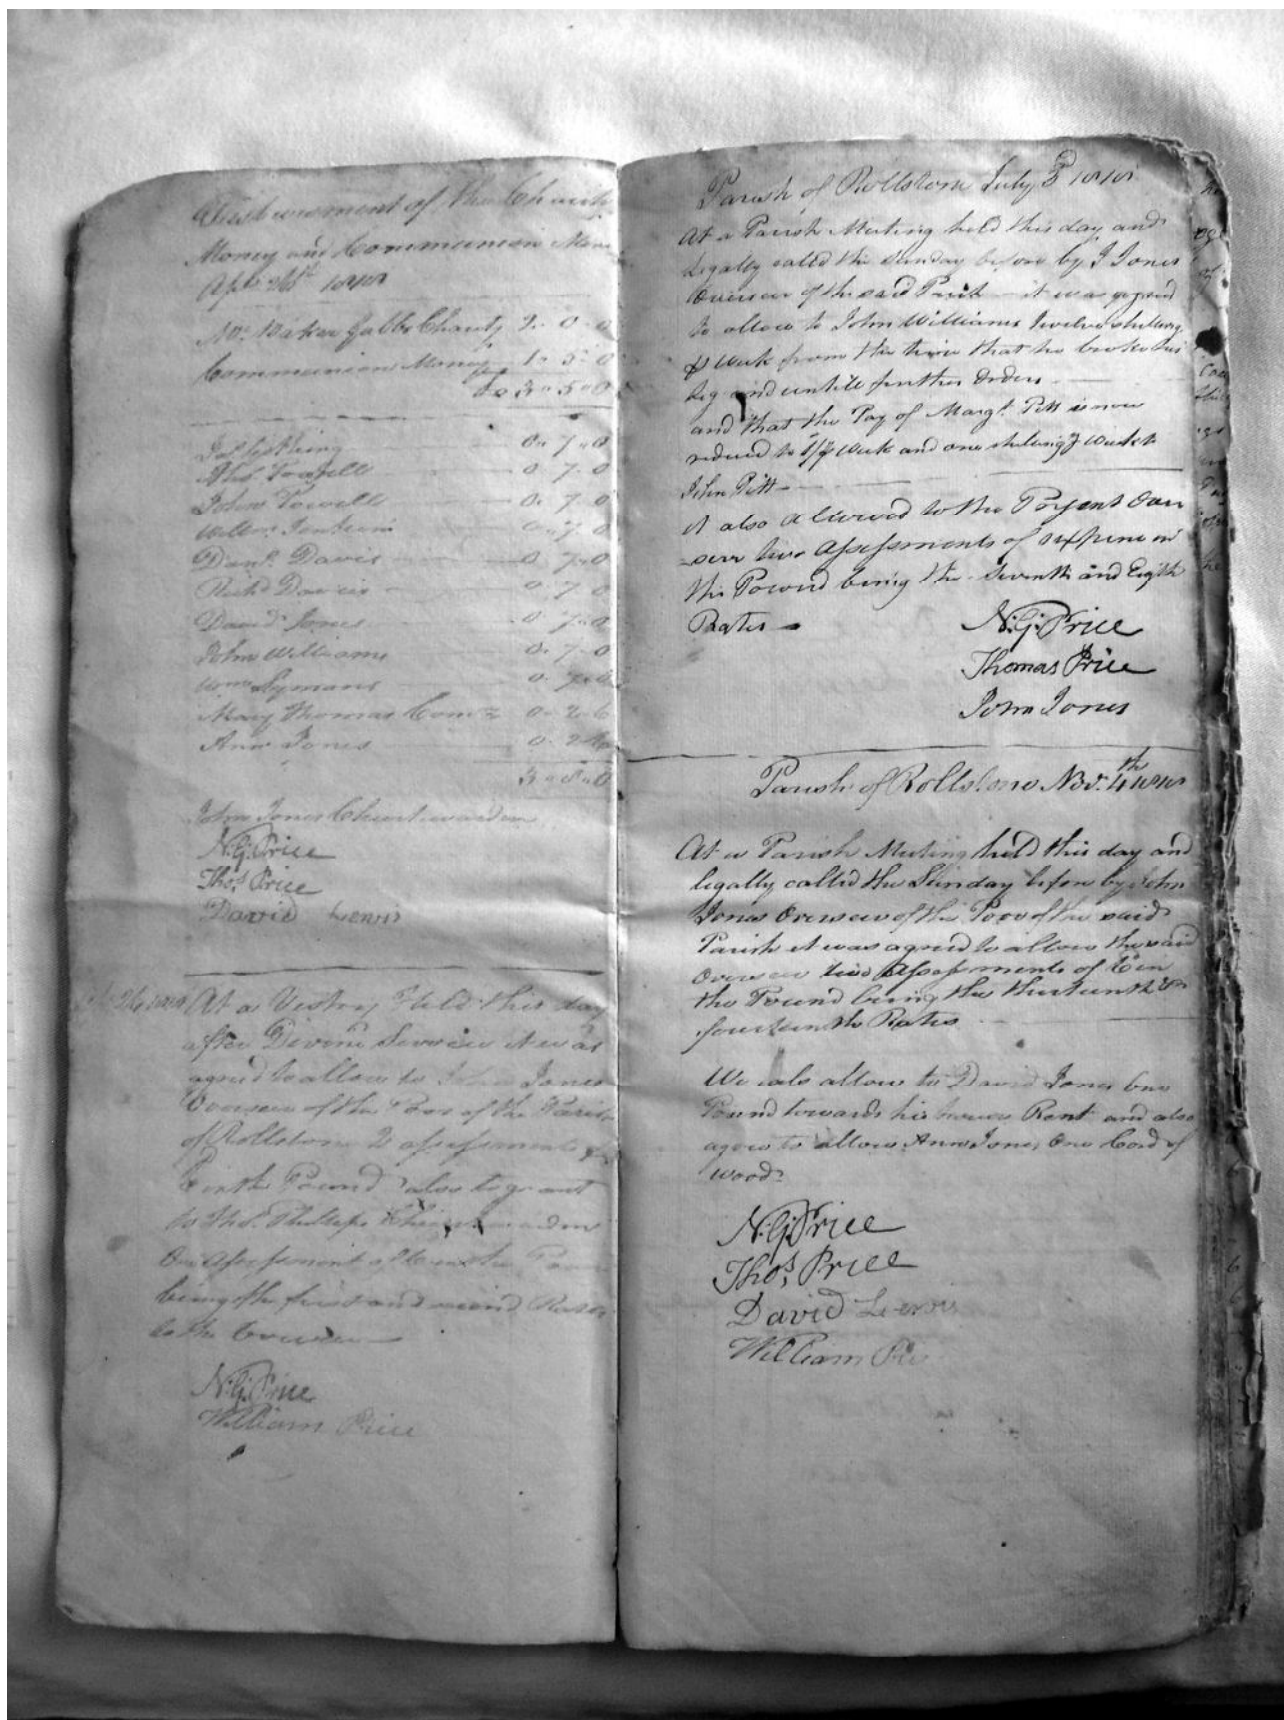 Disbursment of the Charity
Money and Communion Mon
Apl 26th 1818
Mr. Baker Gabbs Charity 2 - 0 - 0
Communion Money 1 - 5 - 0
3 - 5 - 0
0 - 7 - 0
Thos. Powell 0 - 7 - 0
John Powell 0 - 7 - 0
Willm. Jenkins 0 - 7 - 0
Danl. Davis 0 - 7 - 0
Richd Davis 0 - 7 - 0
David Jones 0 - 7 - 0
John Williams 0 - 7 - 0
Wm Symons 0 - 7 - 0
Mary Thomas Com 0 - 2 - 6
Ann Jones 0 - 2 - 6
3 - 8 - 0
John Jones Churchwarden
N. G. Price
Thos. Price
David Lewis
At a Vestry Held this day
after Devine Service it was
agreed to allow to John Jones
Overseer of the Poor of the Parish
of Rollstone 2 assessments
in the Pound also to grant
to Thos. Phillips Churchwarden
One assessment
being the first and second Rates
to the Overseer
N. G. Price
William Price
Parish of Rollstone July 5 1818
At a Parish Meeting held this day and
legally called the Sunday before by J Jones
Overseer of the said Parish it was agreed
to allow to John Williams twelve shilling
P week from the time that he broke his
leg and untill further Orders
and that the Pay of Margt. Pitt is now
reduced to week and one shiling P week to
John Pitt
it also allowed to the Present Over
-seer two Assessments of sixpence in
the Pound being the Seventh and Eigth
Rates
N. G. Price
Thomas Price
John Jones
Parish of Rollstone Nov. 4th 1818
At a Parish Meeting held this day and
legally called the Sunday before by John
Jones Overseer of the Poor of the said
Parish it was agreed to allow the said
Overseer two Assessments of in
the Pound being the thirteenth &
fourteenth Rates
We also allow to David Jones One
Pound towards his house Rent and also
agree to allow Ann Jones One Cord of
wood
N. G. Price
Thos. Price
David Lewis
William